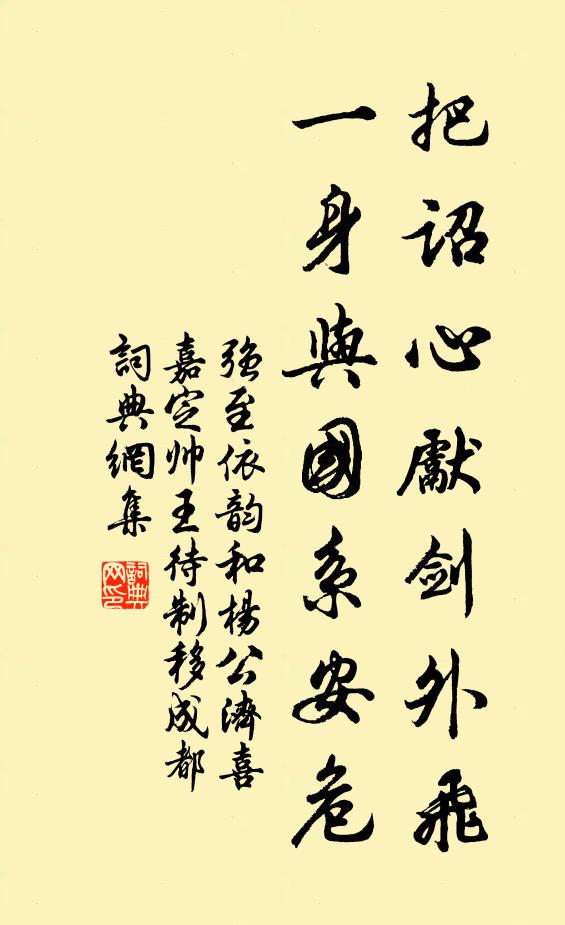 把詔心獻剑外飛
一身與國系安危
强至依韵和楊公濟喜
嘉定帅王待制移成都
詞典網集
詞典
网印